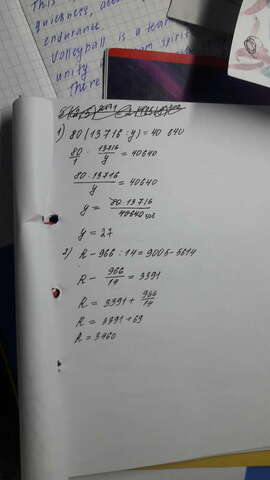 This
quickness, 
endurance
Volleyball is a team
unity team spirit
There
1) 80(13716 : y) = 40 640
80/1 · 13716/y = 40640
80·13716/y = 40640
y = 80·13716/40640
y = 27
2) R - 966 : 14 = 9005 - 5614
R - 966/14 = 3391
R = 3391 + 966/14
R = 3391 + 69
R = 3460